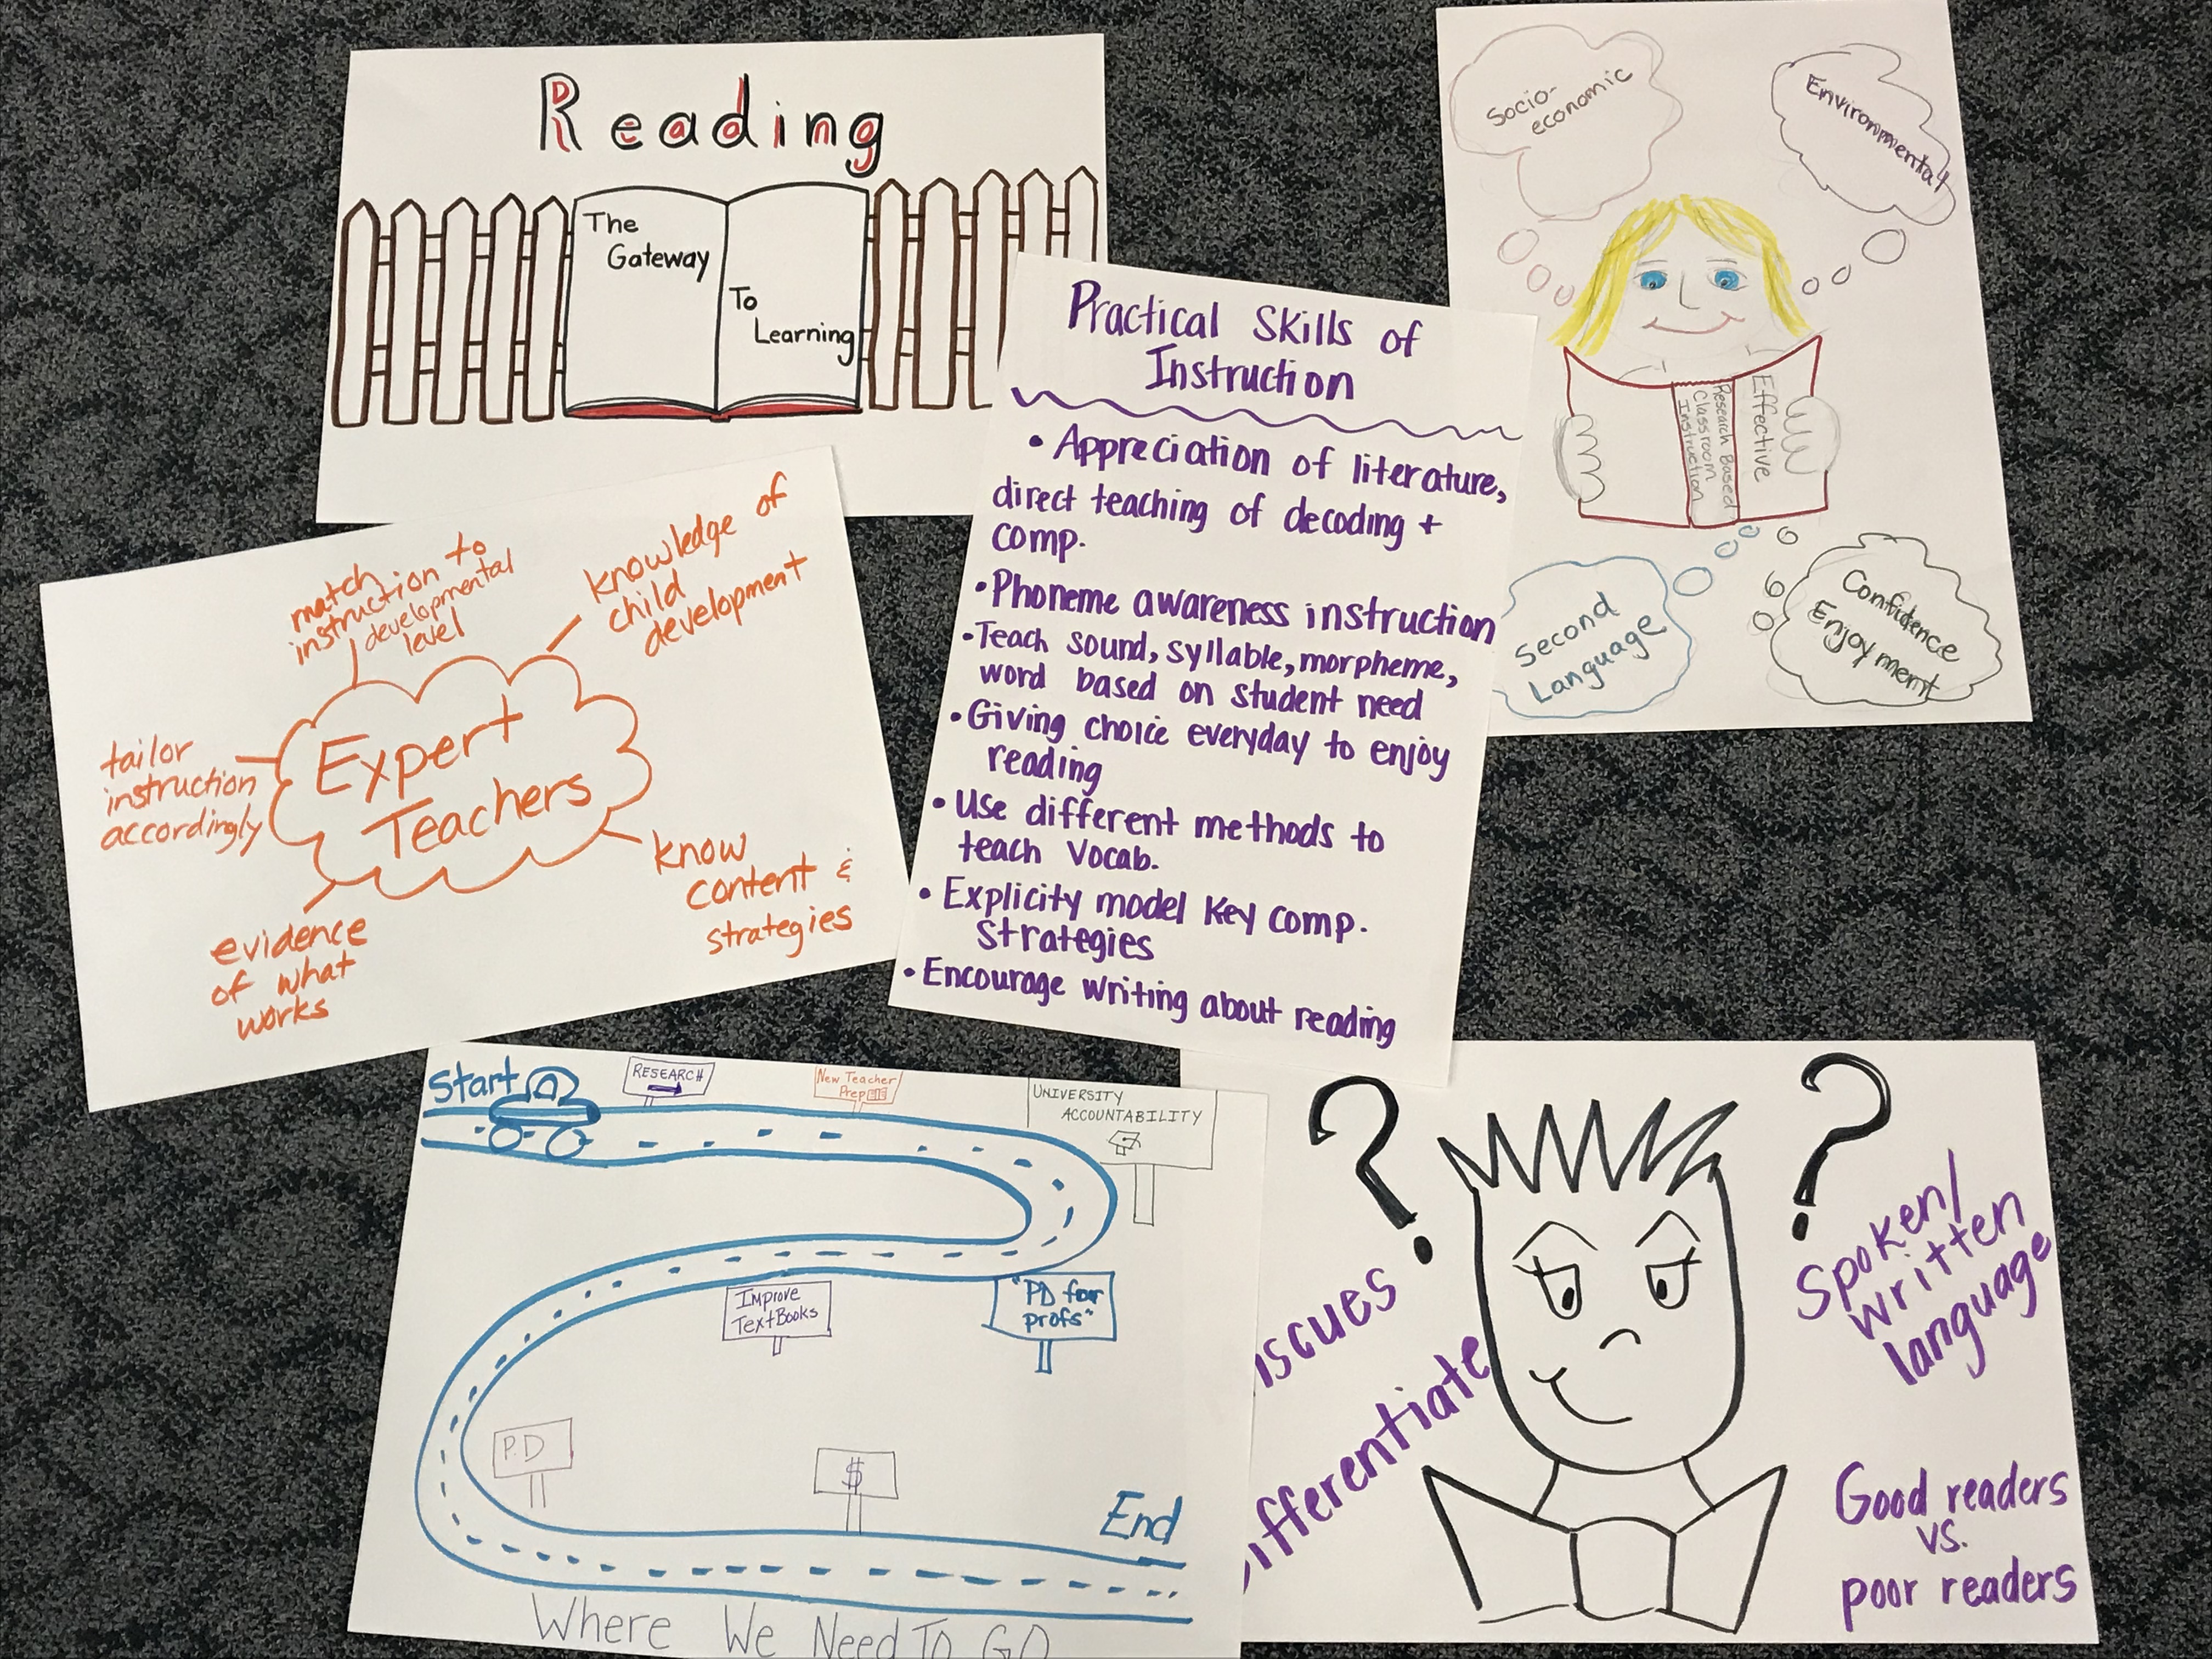 Reading
The
Gateway
To
Learning
Socio-
economic
Environmental
Effective
Research Based
Classroom
Instruction
Second
Language
Confidence
Enjoyment
Practical Skills of
Instruction
• Appreciation of literature,
direct teaching of decoding +
comp.
• Phoneme awareness instruction
• Teach sound, syllable, morpheme,
word based on student need
• Giving choice everyday to enjoy
reading
• Use different methods to
teach vocab.
• Explicity model key comp.
strategies
• Encourage writing about reading
match
instruction to
developmental
level
knowledge of
child
development
tailor
instruction
accordingly
Expert
Teachers
know
content &
strategies
evidence
of what
works
Start
RESEARCH
New Teacher
Prep
UNIVERSITY
ACCOUNTABILITY
Improve
TextBooks
"PD for
profs"
P.D
$
End
Where We Need To GO
? ?
Spoken/
written
language
iscues
ifferentiate
Good readers
vs.
poor readers